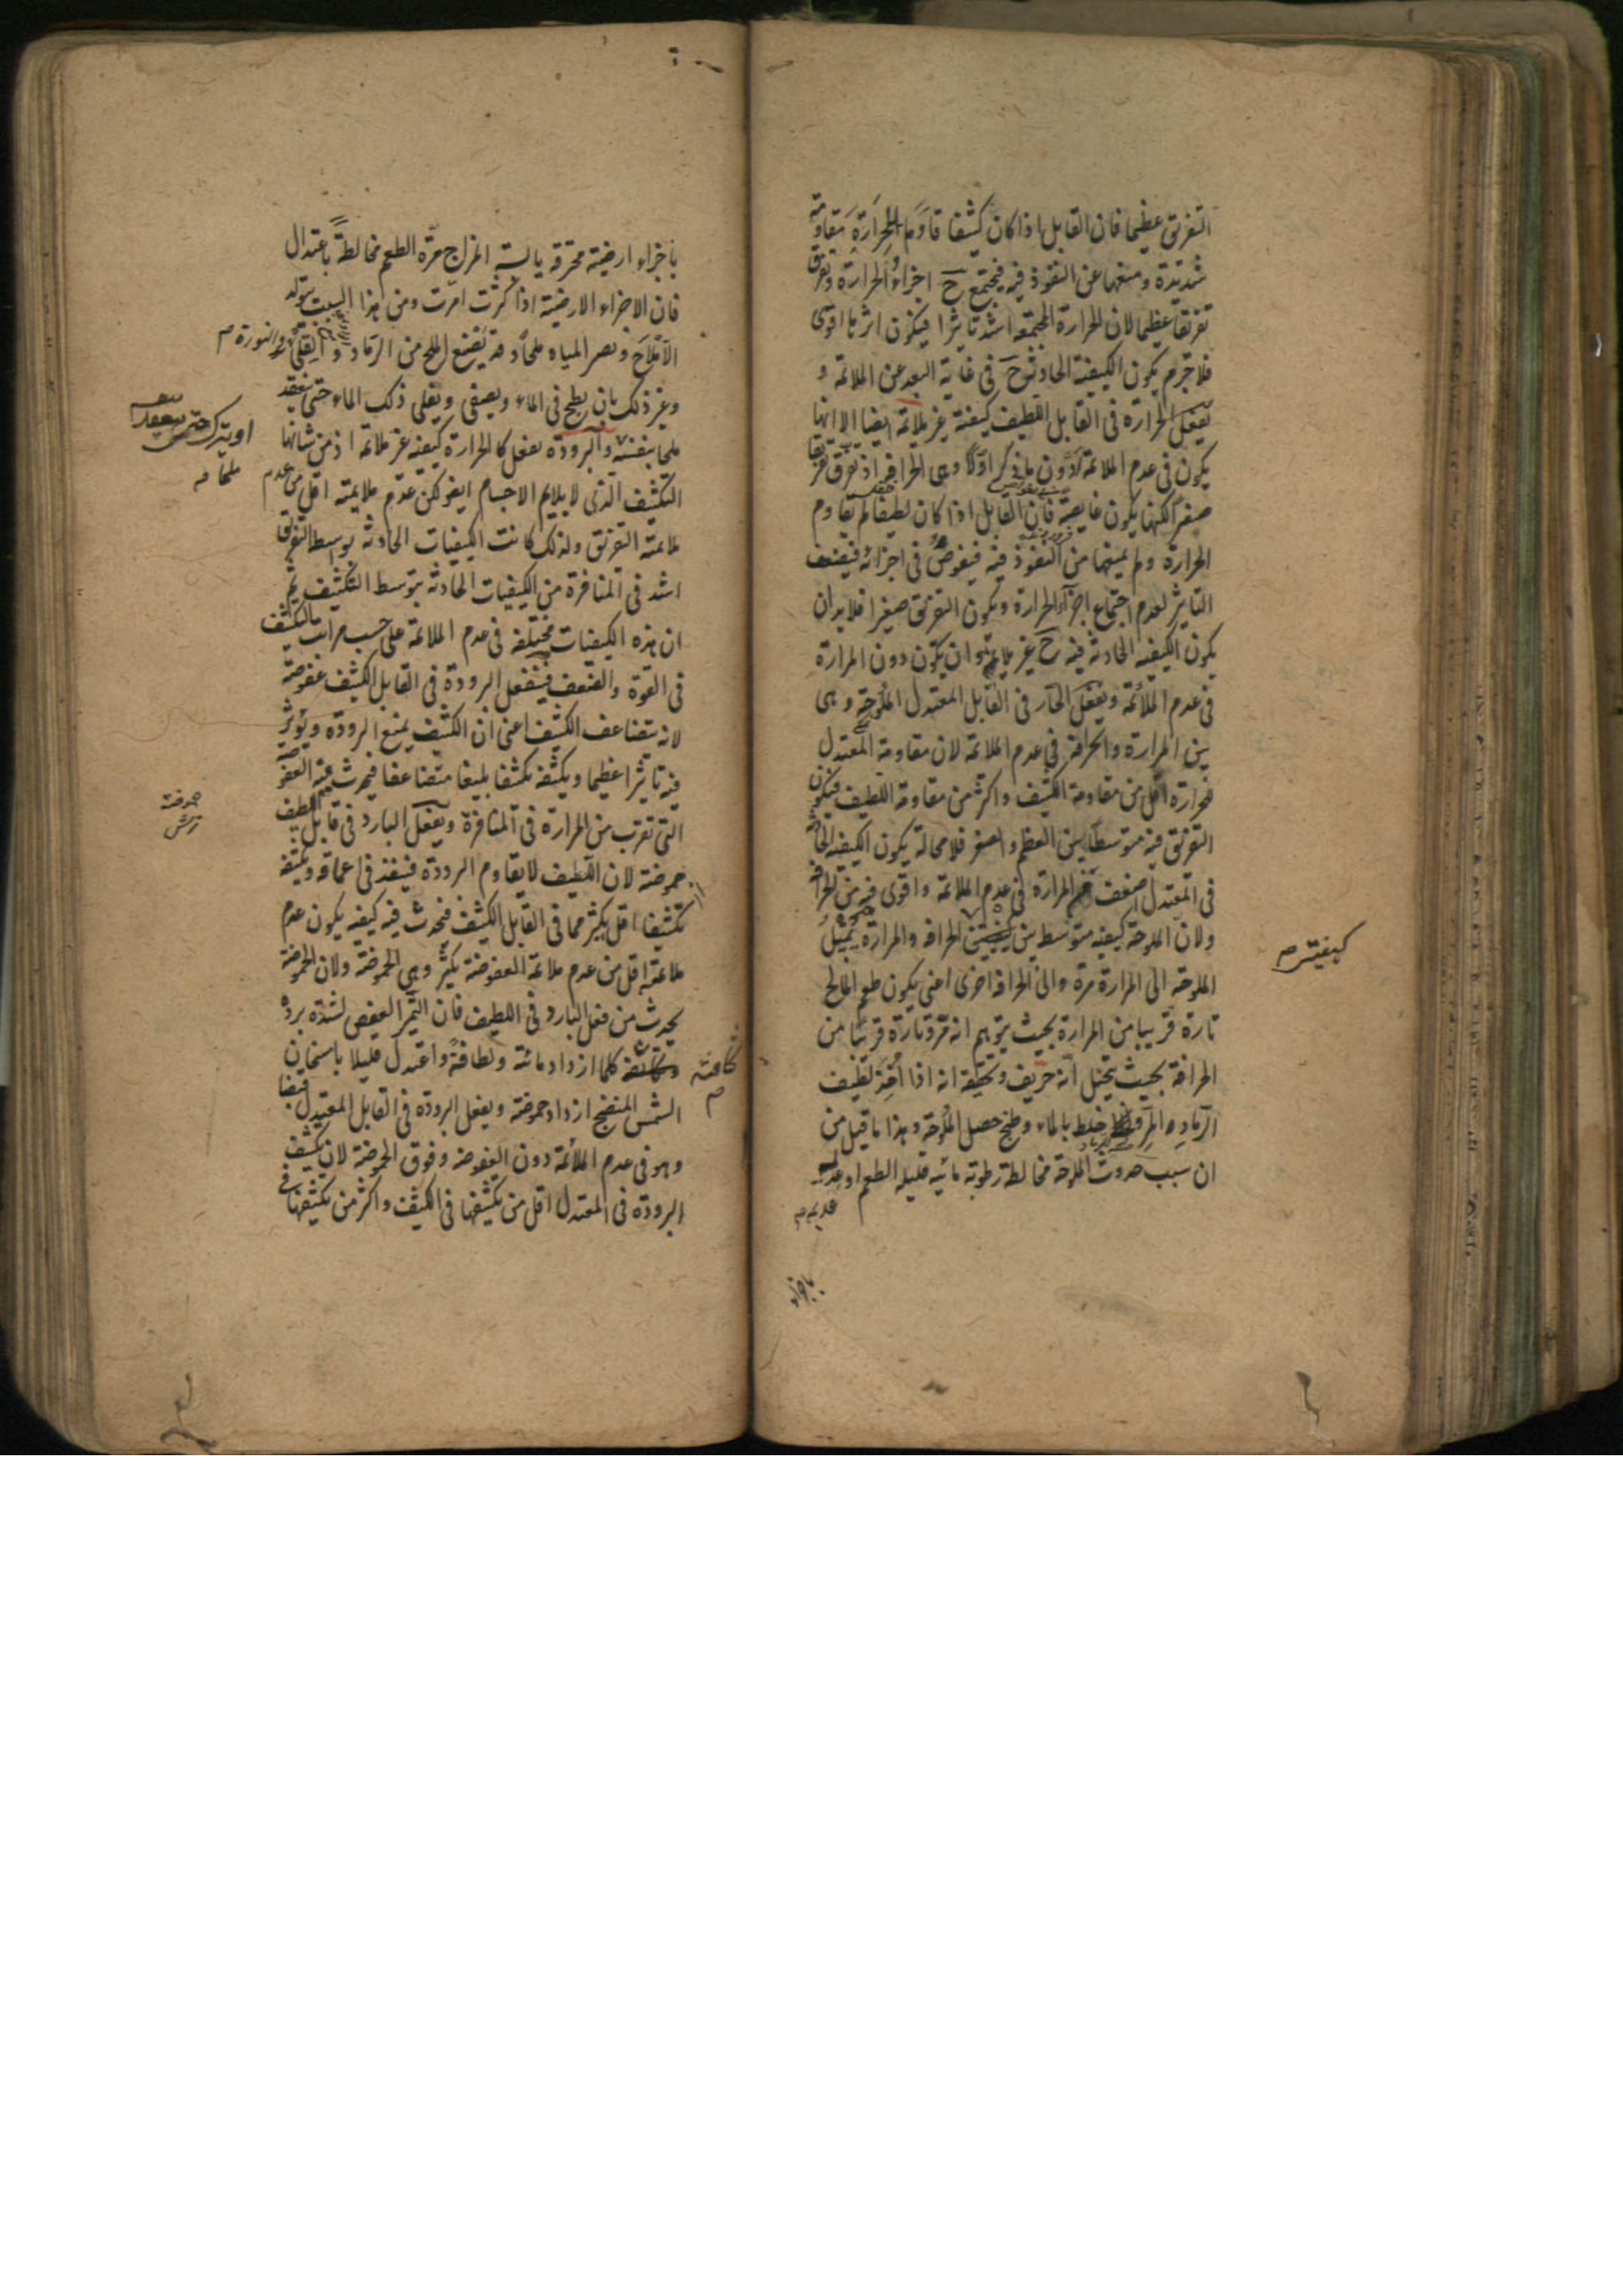 التفريق عظيما فان القابل اذا كان كثيفا قاوم الحرارة مقاومة
شديدة ومنعها عن النفوذ فيه فيجتمع ح اجزاء الحرارة وتفرق
تفريقا عظيما لان الحرارة المجتمعة اشد تأثيرا فيكون اثرها اقوى
فلا جرم يكون الكيفية الحادثة ح في غاية البعد عن الملائمة و
يفعل الحرارة في القابل اللطيف كيفية غير ملائمة ايضا الا انها
يكون في عدم الملائمة دون ما ذكر اولا وهي الحرافة اذ تفرق تفريقا
صغيرا لكنها يكون غايصة فان القابل اذا كان لطيفا لم تقاوم
الحرارة ولم يمنعها من النفوذ فيه فيغوص في اجزائه فيضعف
التاثير لعدم اجتماع اجزاء الحرارة ويكون التفريق صغيرا فلا بد ان
يكون الكيفية الحادثة فيه ح غير ملايمة وان يكون دون المرارة
في عدم الملائمة ويفعل الحار في القابل المعتدل الملوحة وهي
بين المرارة والحرافة في عدم الملائمة لان مقاومة المعتدل
للحرارة اقل من مقاومة الكثيف واكثر من مقاومة اللطيف فيكون
التفريق فيه متوسطا بين العظم والصغر فلا محالة يكون الكيفية الحادثة
في المعتدل اضعف من المرارة في عدم الملائمة واقوى فيه من الحرافة
ولان الملوحة كيفية متوسط بين كيفيتين الحرافة والمرارة يميل
كيفيتى صح
الملوحة الى المرارة مرة والى الحرافة اخرى اعنى يكون طعم المالح
تارة قريبا من المرارة بحيث يتوهم انه مر وتارة قريبا من
الحرافة بحيث يتخيل انه حريف وتحقيقه انه اذا اخذ لطيف
الرماد المر وخلط بالماء وطبخ حصل الملوحة وهذا ما قيل من
ان سبب حدوث الملوحة مخالطة رطوبة مائية قليلة الطعم او
عديمة
باجزاء
باجزاء ارضية محترقة يابسة المزاج مرة الطعم مخالطة باعتدال
فان الاجزاء الارضية اذا كثرت امرت ومن هذا السبب يتولد
الاملاح ويصير المياه ملحا وقد يصنع الملح من الرماد والقلى والنورة
وغير ذلك بان يطبخ في الماء ويصفى ويغلى ذلك الماء حتى ينعقد
او يترك حتى ينعقد
ملحا
ملحا بنفسه والبرودة يفعل كالحرارة كيفية غير ملائمة اذ من شانها
التكثيف الذي لا يلايم الاجسام ايضا لكن عدم ملايمته اقل من عدم
ملائمة التفريق ولذلك كانت الكيفيات الحادثة بتوسط التفريق
اشد في المنافرة من الكيفيات الحادثة بتوسط التكثيف ثم
ان هذه الكيفيات مختلفة في عدم الملائمة على حسب مراتب التكثيف
في القوة والضعف فيفعل البرودة في القابل الكثيف عفوصة
لانه يتضاعف الكثيف اعنى ان الكثيف يمنع البرودة ويؤثر
فيه تأثيرا عظيما ويكثفه تكثيفا بليغا متضاعفا فيحدث فيه العفوصة
التى تقرب من المرارة في المنافرة ويفعل البارد في قابل اللطيف
حموضة
حموضة لان اللطيف لا يقاوم البرودة فينفذ في اعماقه ويكثفه
تكثيفا اقل بكثير مما في القابل الكثيف فيحدث فيه كيفية يكون عدم
ملائمتها اقل من عدم ملائمة العفوصة بكثير وهي الحموضة ولان الحموضة
يحدث من فعل البارد في اللطيف فان الثمر العفص لشدة برده
وكثافته كلما ازداد مائية ولطافة واعتدل قليلا باسخان
كثافته
الشمس المنضج ازداد حموضة ويفعل البرودة في القابل المعتدل قبضا
وهو في عدم الملائمة دون العفوصة وفوق الحموضة لان تكثيف
البرودة في المعتدل اقل من تكثيفها في الكثيف واكثر من تكثيفها في